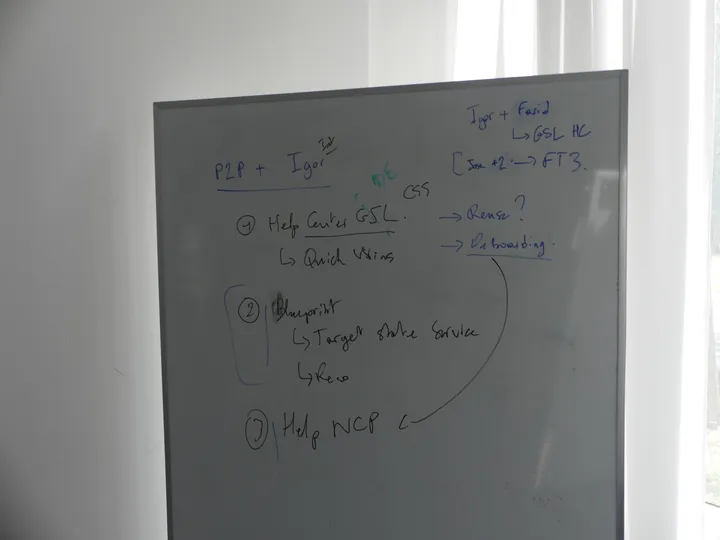 Igor + Farid
↳ GSL HC
→ FT3.
P2P + Igor
① Help Center GSL. CSS
→ Reuse?
↳ Quick Wins
→ Deboarding.
② Blueprint
↳ Target State Service
↳ Reco
③ Help NCP